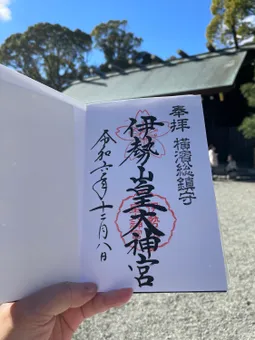 奉拝 横濱総鎮守
伊勢山皇大神宮
令和六年十二月八日